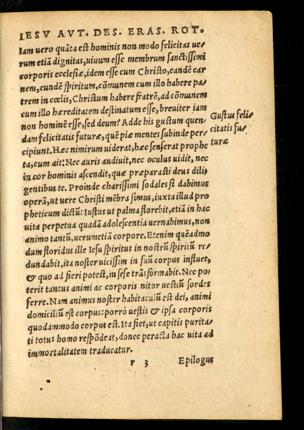 IESV AVT. DES. ERAS. ROT.
Iam uero quāta est hominis non modo felicitas ue/
rum etiā dignitas, uiuum esse membrum sanctissimi
corporis ecclesiæ, idem esse cum Christo, eandē car
nem, eundē spiritum, cōmunem cum illo habere pa
trem in cœlis, Christum habere fratrē, ad cōmunem
cum illo hæreditatem destinatum esse, breuiter iam
non hominē esse, sed deum? Adde his gustum quen/
dam felicitatis futuræ, quē piæ mentes subinde per
cipiunt. Hæc nimirum uiderat, hæc senserat prophe
ta, cum ait: Nec auris audiuit, nec oculus uidit, nec
in cor hominis ascendit, quæ præparasti deus dili
gentibus te. Proinde charissimi sodales si dabimus
operā, ut uere Christi mēbra simus, iuxta illud pro
pheticum dictū: Iustus ut palma florebit, etiā in hac
uita perpetua quadā adolescentia uernabimus, non
animo tantū, uerumetiā corpore. Etenim quēadmo
dum floridus ille Iesu spiritus in nostrū spiritū re/
dundabit, ita noster uicissim in suū corpus influet,
& quo ad fieri potest, in sese trāsformabit. Nec po
terit tantus animi ac corporis nitor uestiū sordes
ferre. Nam animus noster habitaculū est dei, animi
domiciliū est corpus: porrò uestis & ipsa corporis
quodammodo corpus est. Ita fiet, ut capitis purita/
ti totus homo respōdeat, donec peracta hac uita ad
immortalitatem traducatur.
r 3 Epilogus
Gustus feli/
citatis fu/
turæ